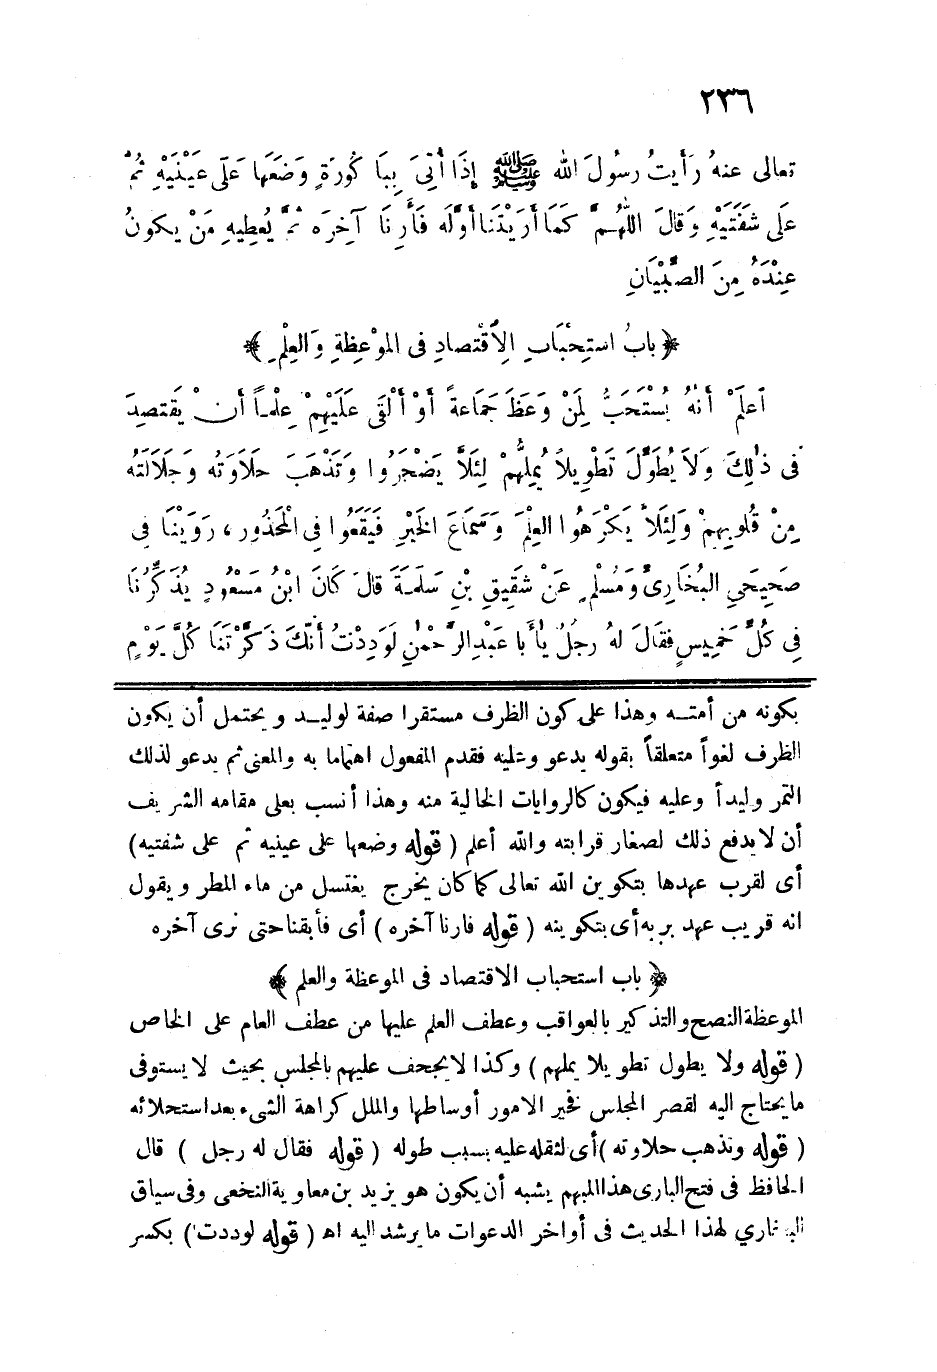 ٢٣٦
تعالى عنهُ رَأَيتُ رسُولَ الله ﷺ إِذَا أُتِيَ بِبَا كُورَةٍ وَضَعَهَا عَلَى عَيْنَيْهِ ثُمَّ
عَلَى شَفَتَيْهِ وَقالَ اللّٰهُمَّ كَمَا أَرَيْتَنَا أَوَّلَه فَأَرِنَا آخِرَه ثُمَّ يُعطِيهِ مَنْ يكونُ
عِنْدَهُ مِنَ الصِّبْيَانِ
﴿ بابُ استِحْبَابِ الاِقْتصادِ فى الموْعِظةِ وَالعِلْمِ ﴾
اَعلَمْ أَنَّهُ يُسْتَحَبُّ لِمَنْ وَعَظَ جَمَاعَةً أَوْ أَلْقَى عَلَيْهِمْ عِلماً أن يَقتصِدَ
فى ذٰلِكَ وَلاَ يُطَوِّلَ تَطْوِيلاً يُمِلُّهُمْ لِئَلاَّ يَضْجَرُوا وَتَذْهَبَ حَلاَوَتُه وَجَلاَلَتُه
مِنْ قُلوبِهِمْ وَلِئَلاَّ يَكْرَهُوا العِلْمَ وَسَمَاعَ الخَيْرِ فَيَقَعُوا فِى الْمَحْذُورِ ، رَوَيْنَا فِى
صَحِيحَىِ البُخَارِىِّ وَمُسْلِمٍ عَنْ شَقِيقِ بْنِ سَلَمَةَ قالَ كَانَ ابْنُ مَسْعُودٍ يُذَكِّرُنَا
فِى كُلِّ خَمِيسٍ فقَالَ لهُ رجلُ يا أَبا عَبْدِ الرَّحْمٰنِ لَوَدِدْتُ أَنَّكَ ذَكَّرْتَنَا كُلَّ يَوْمٍ
بكونه من أمته وهذا على كون الظرف مستقرا صفة لوليد و يحتمل أن يكون
الظرف لغواً متعلقاً بقوله يدعو وعليه فقدم المفعول اهتماما به والمعنى ثم يدعو لذلك
التمر وليداً وعليه فيكون كالروايات الخالية منه وهذا أنسب بعلى مقامه الشريف
أن لا يدفع ذلك لصغار قرابته والله أعلم ( قوله وضعها على عينيه ثم على شفتيه)
أى لقرب عهدها بتكوين الله تعالى كما كان يخرج يغتسل من ماء المطر و يقول
انه قريب عهد بربه أى بتكوينه ( قوله فارنا آخره ) أى فأبقنا حتى نرى آخره
﴿ باب استحباب الاقتصاد فى الموعظة والعلم ﴾
الموعظة النصح والتذكير بالعواقب وعطف العلم عليها من عطف العام على الخاص
( قوله ولا يطول تطويلا يملهم ) وكذا لا يجحف عليهم بالمجلس بحيث لا يستوفى
ما يحتاج اليه لقصر المجلس فخير الامور أوساطها والملل كراهة الشىء بعد استحلائه
( قوله وتذهب حلاوته ) أى لثقله عليه بسبب طوله ( قوله فقال له رجل ) قال
الحافظ فى فتح البارى هذا المبهم يشبه أن يكون هو يزيد بن معاوية النخعى وفى سياق
البخاري لهذا الحديث فى أواخر الدعوات ما يرشد اليه اه ( قوله لوددت ) بكسر